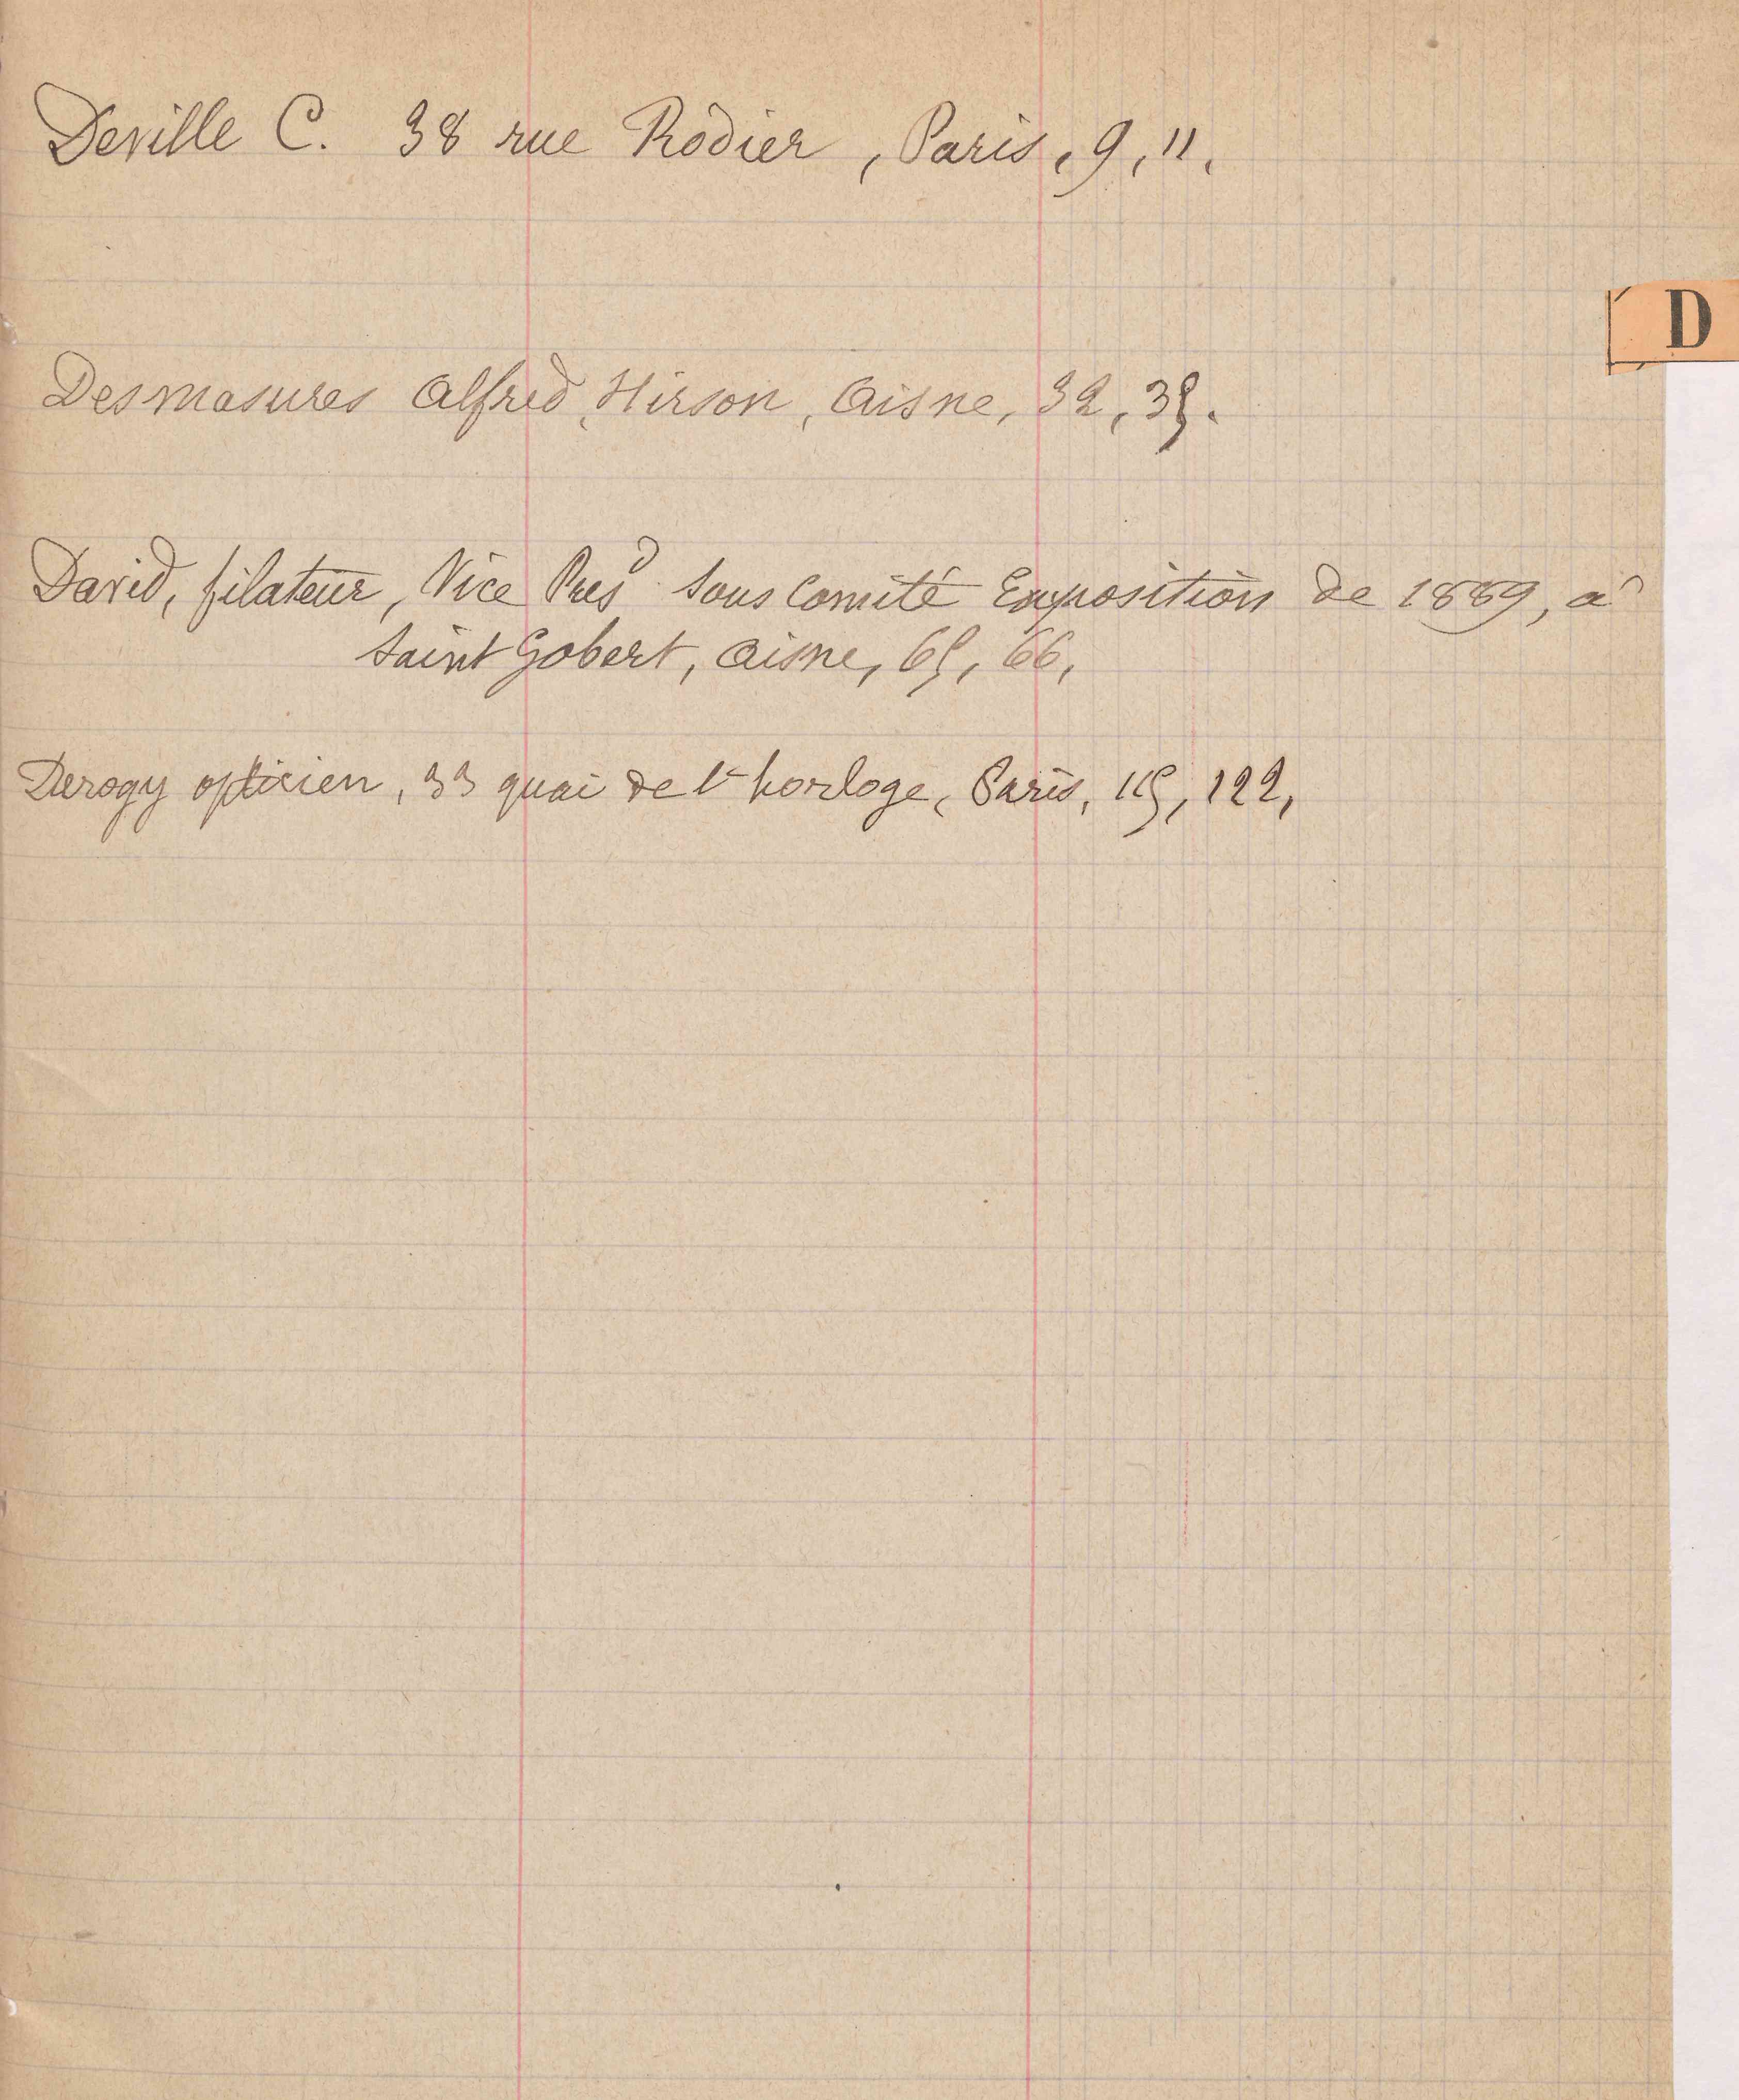 Deville C. 38 rue Rodier, Paris, 9, 11,
D
Desmasures Alfred, Hirson, Aisne, 32, 35.
David, filateur, Vice Presd Sous Comité Exposition de 1889, à
Saint Gobert, Aisne, 65, 66,
Derogy opticien, 33 quai de l'horloge, Paris, 115, 122,